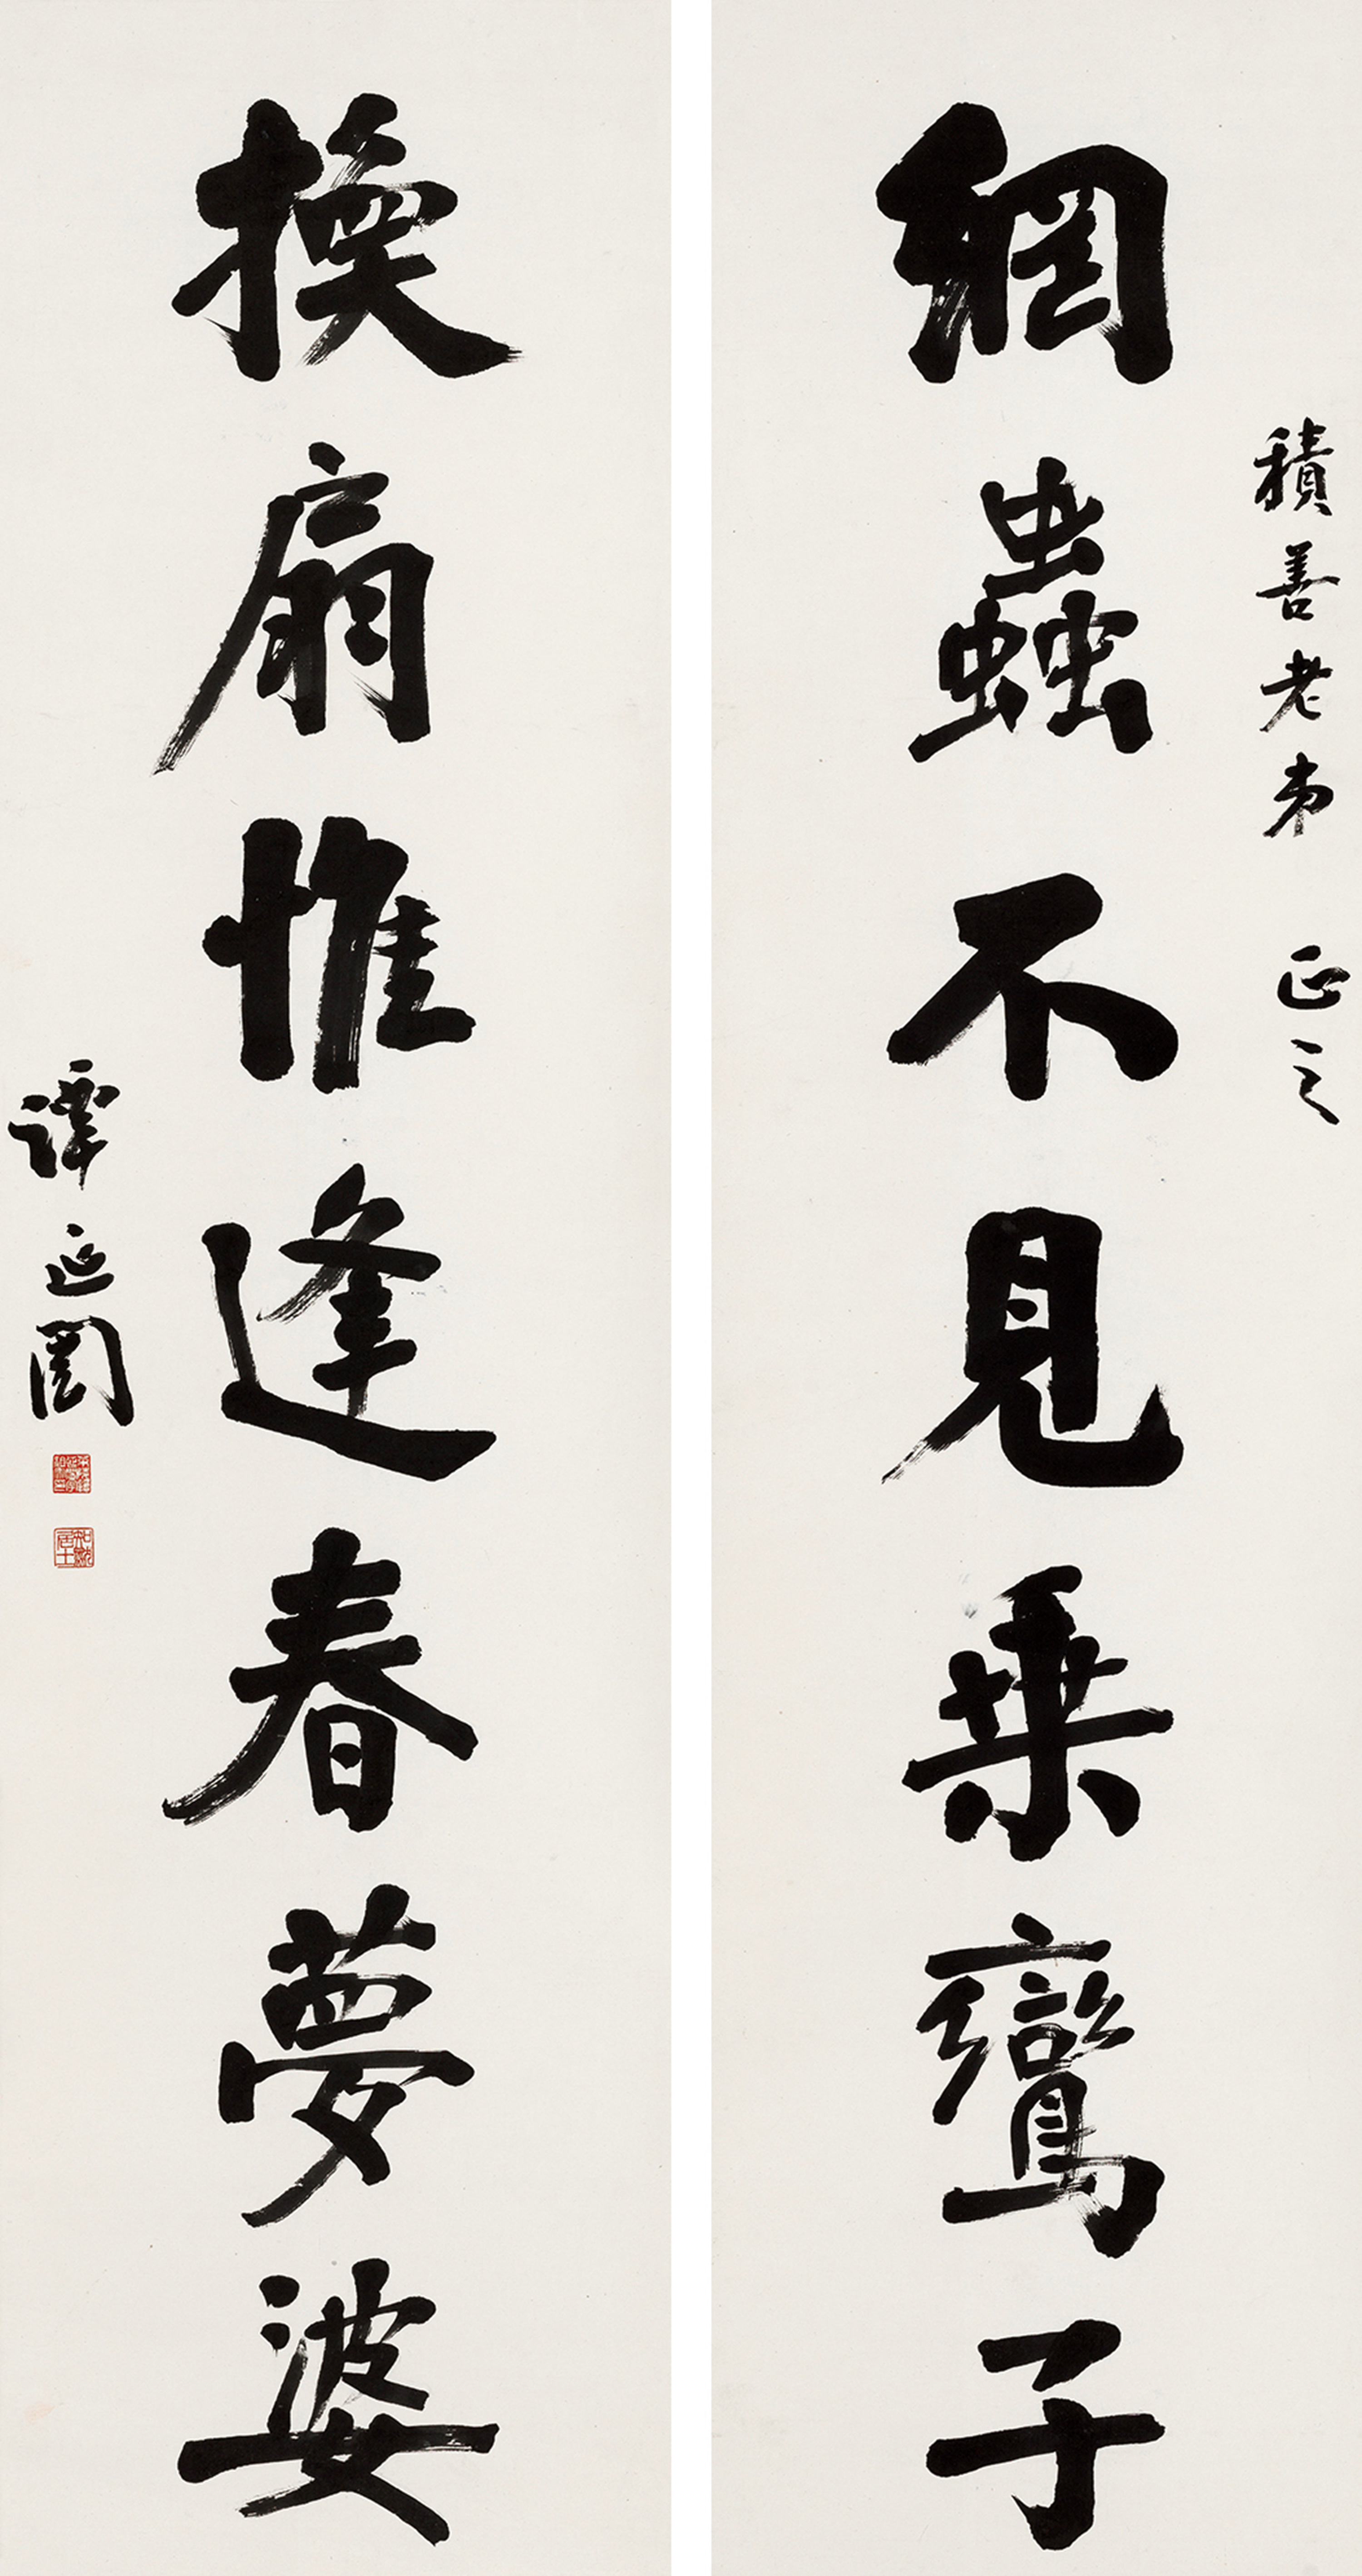 積善老弟 正之
網蟲不見乗鸞子
換扇惟逢春夢婆
譚延闓